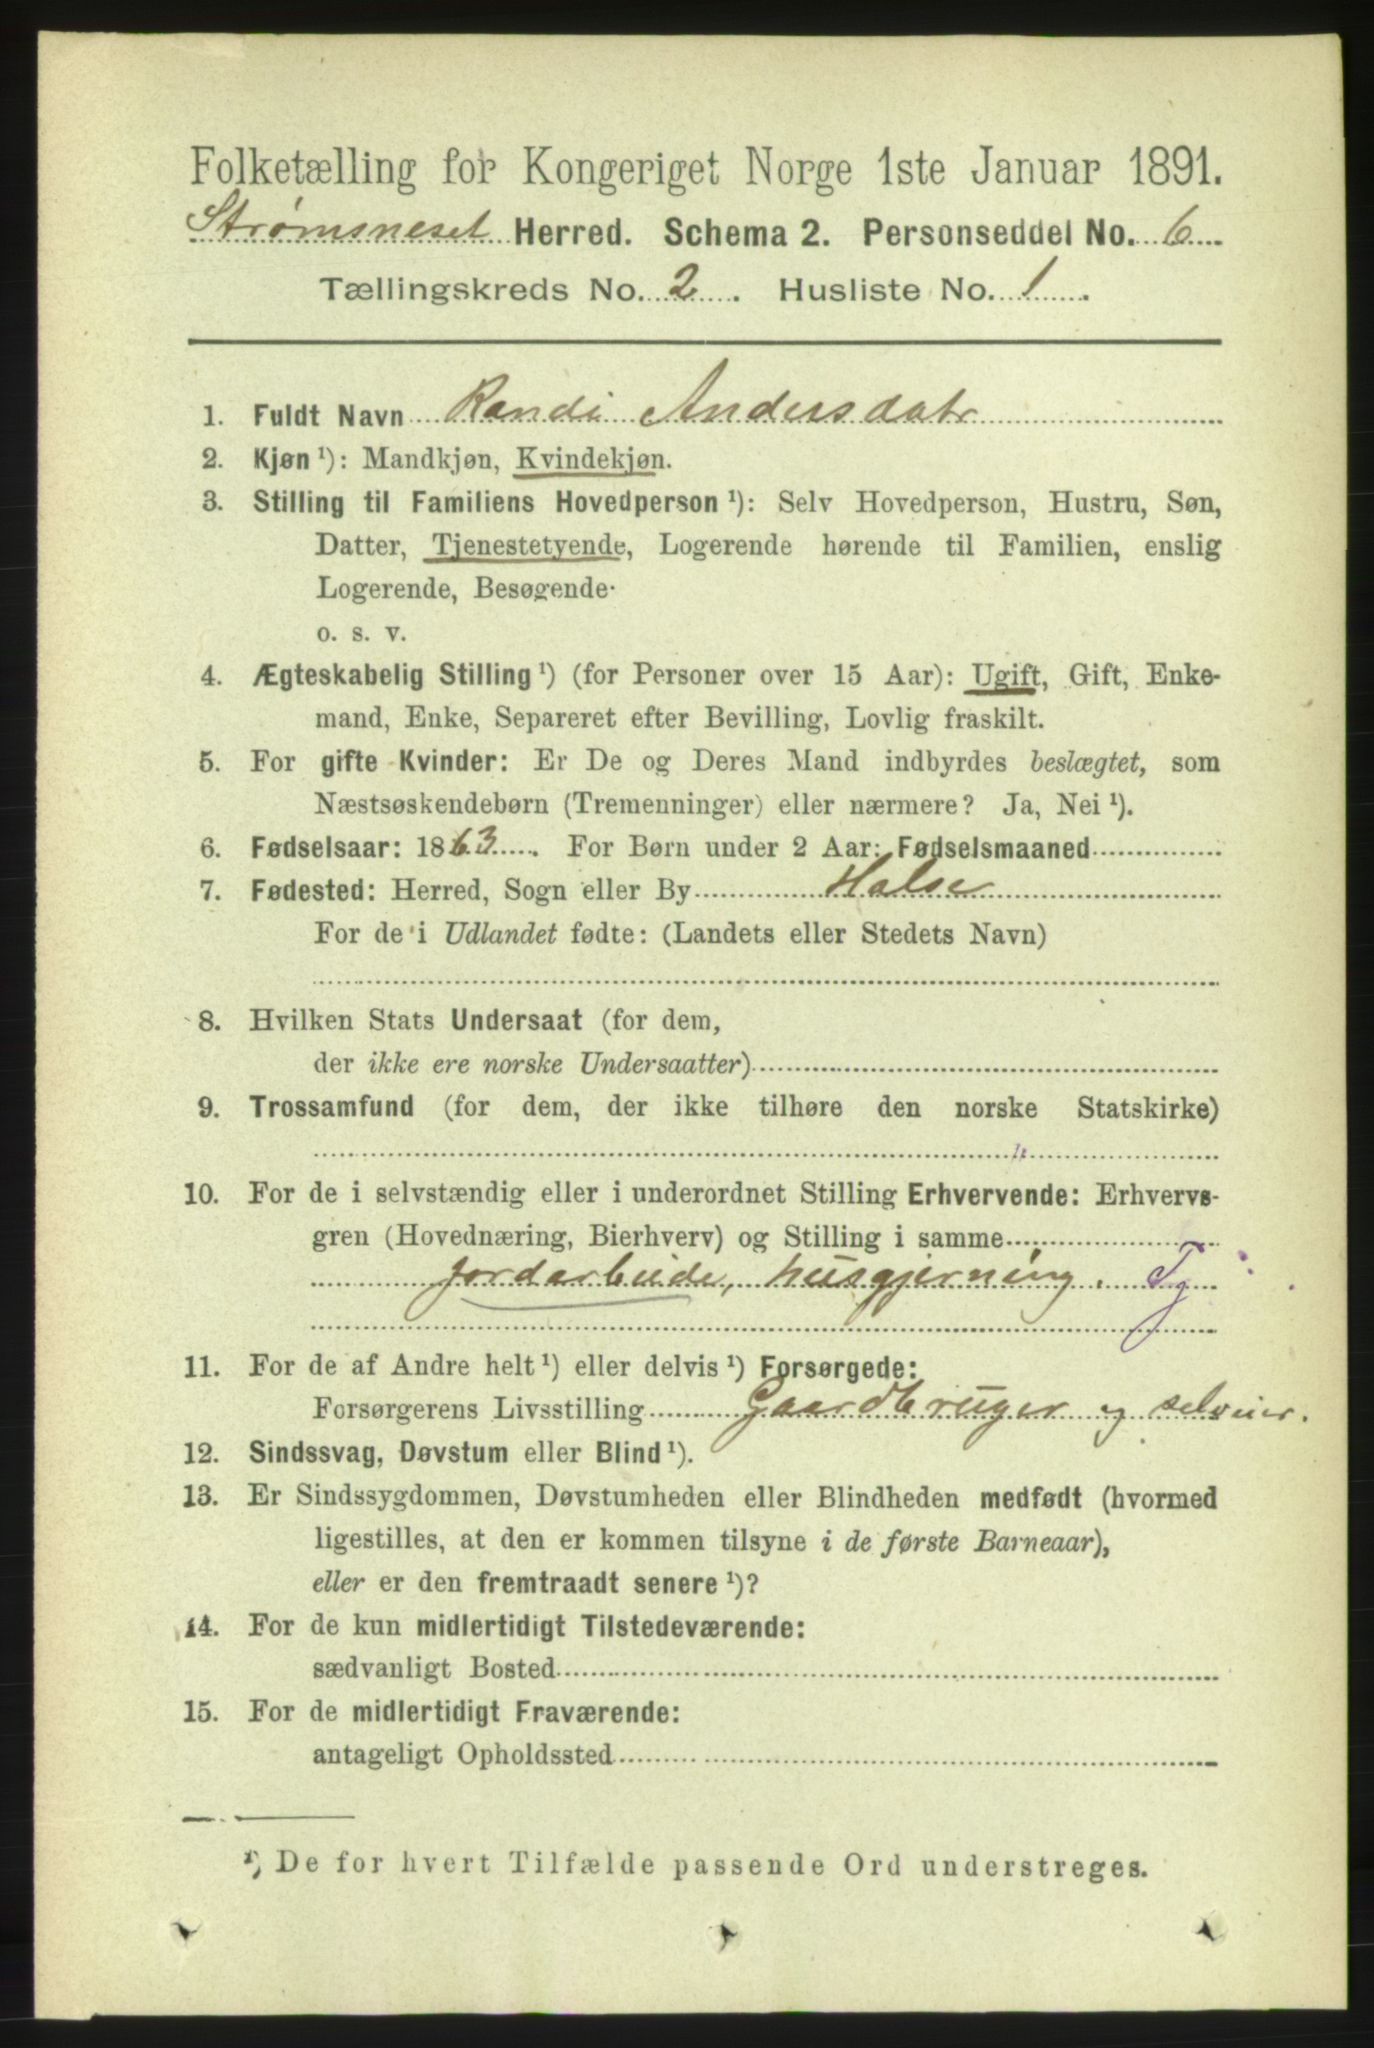 Folketælling for Kongeriget Norge 1ste Januar 1891.
Strømsneset Herred. Schema 2. Personseddel No. 6
Tællingskreds No. 2. Husliste No. 1.
1. Fuldt Navn Randi Andersdatr
2. Kjøn ¹): Mandkjøn, Kvindekjøn.
3. Stilling til Familiens Hovedperson ¹): Selv Hovedperson, Hustru, Søn,
Datter, Tjenestetyende, Logerende hørende til Familien, enslig
Logerende, Besøgende·
o. s. v.
4. Ægteskabelig Stilling ¹) (for Personer over 15 Aar): Ugift, Gift, Enke-
mand, Enke, Separeret efter Bevilling, Lovlig fraskilt.
5. For gifte Kvinder: Er De og Deres Mand indbyrdes beslægtet, som
Næstsøskendebørn (Tremenninger) eller nærmere? Ja, Nei ¹).
6. Fødselsaar: 1863. For Børn under 2 Aar: Fødselsmaaned
7. Fødested: Herred, Sogn eller By Halse
For de i Udlandet fødte: (Landets eller Stedets Navn)
8. Hvilken Stats Undersaat (for dem,
der ikke ere norske Undersaatter)
9. Trossamfund (for dem, der ikke tilhøre den norske Statskirke)
10. For de i selvstændig eller i underordnet Stilling Erhvervende: Erhvervs-
gren (Hovednæring, Bierhverv) og Stilling i samme
Jordarbeide, husgjerning. Tj
11. For de af Andre helt ¹) eller delvis ¹) Forsørgede:
Forsørgerens Livsstilling Gaardbruger og selveier.
12. Sindssvag, Døvstum eller Blind ¹).
13. Er Sindssygdommen, Døvstumheden eller Blindheden medfødt (hvormed
ligestilles, at den er kommen tilsyne i de første Barneaar),
eller er den fremtraadt senere ¹)?
14. For de kun midlertidigt Tilstedeværende:
sædvanligt Bosted
15. For de midlertidigt Fraværende:
antageligt Opholdssted
¹) De for hvert Tilfælde passende Ord understreges.